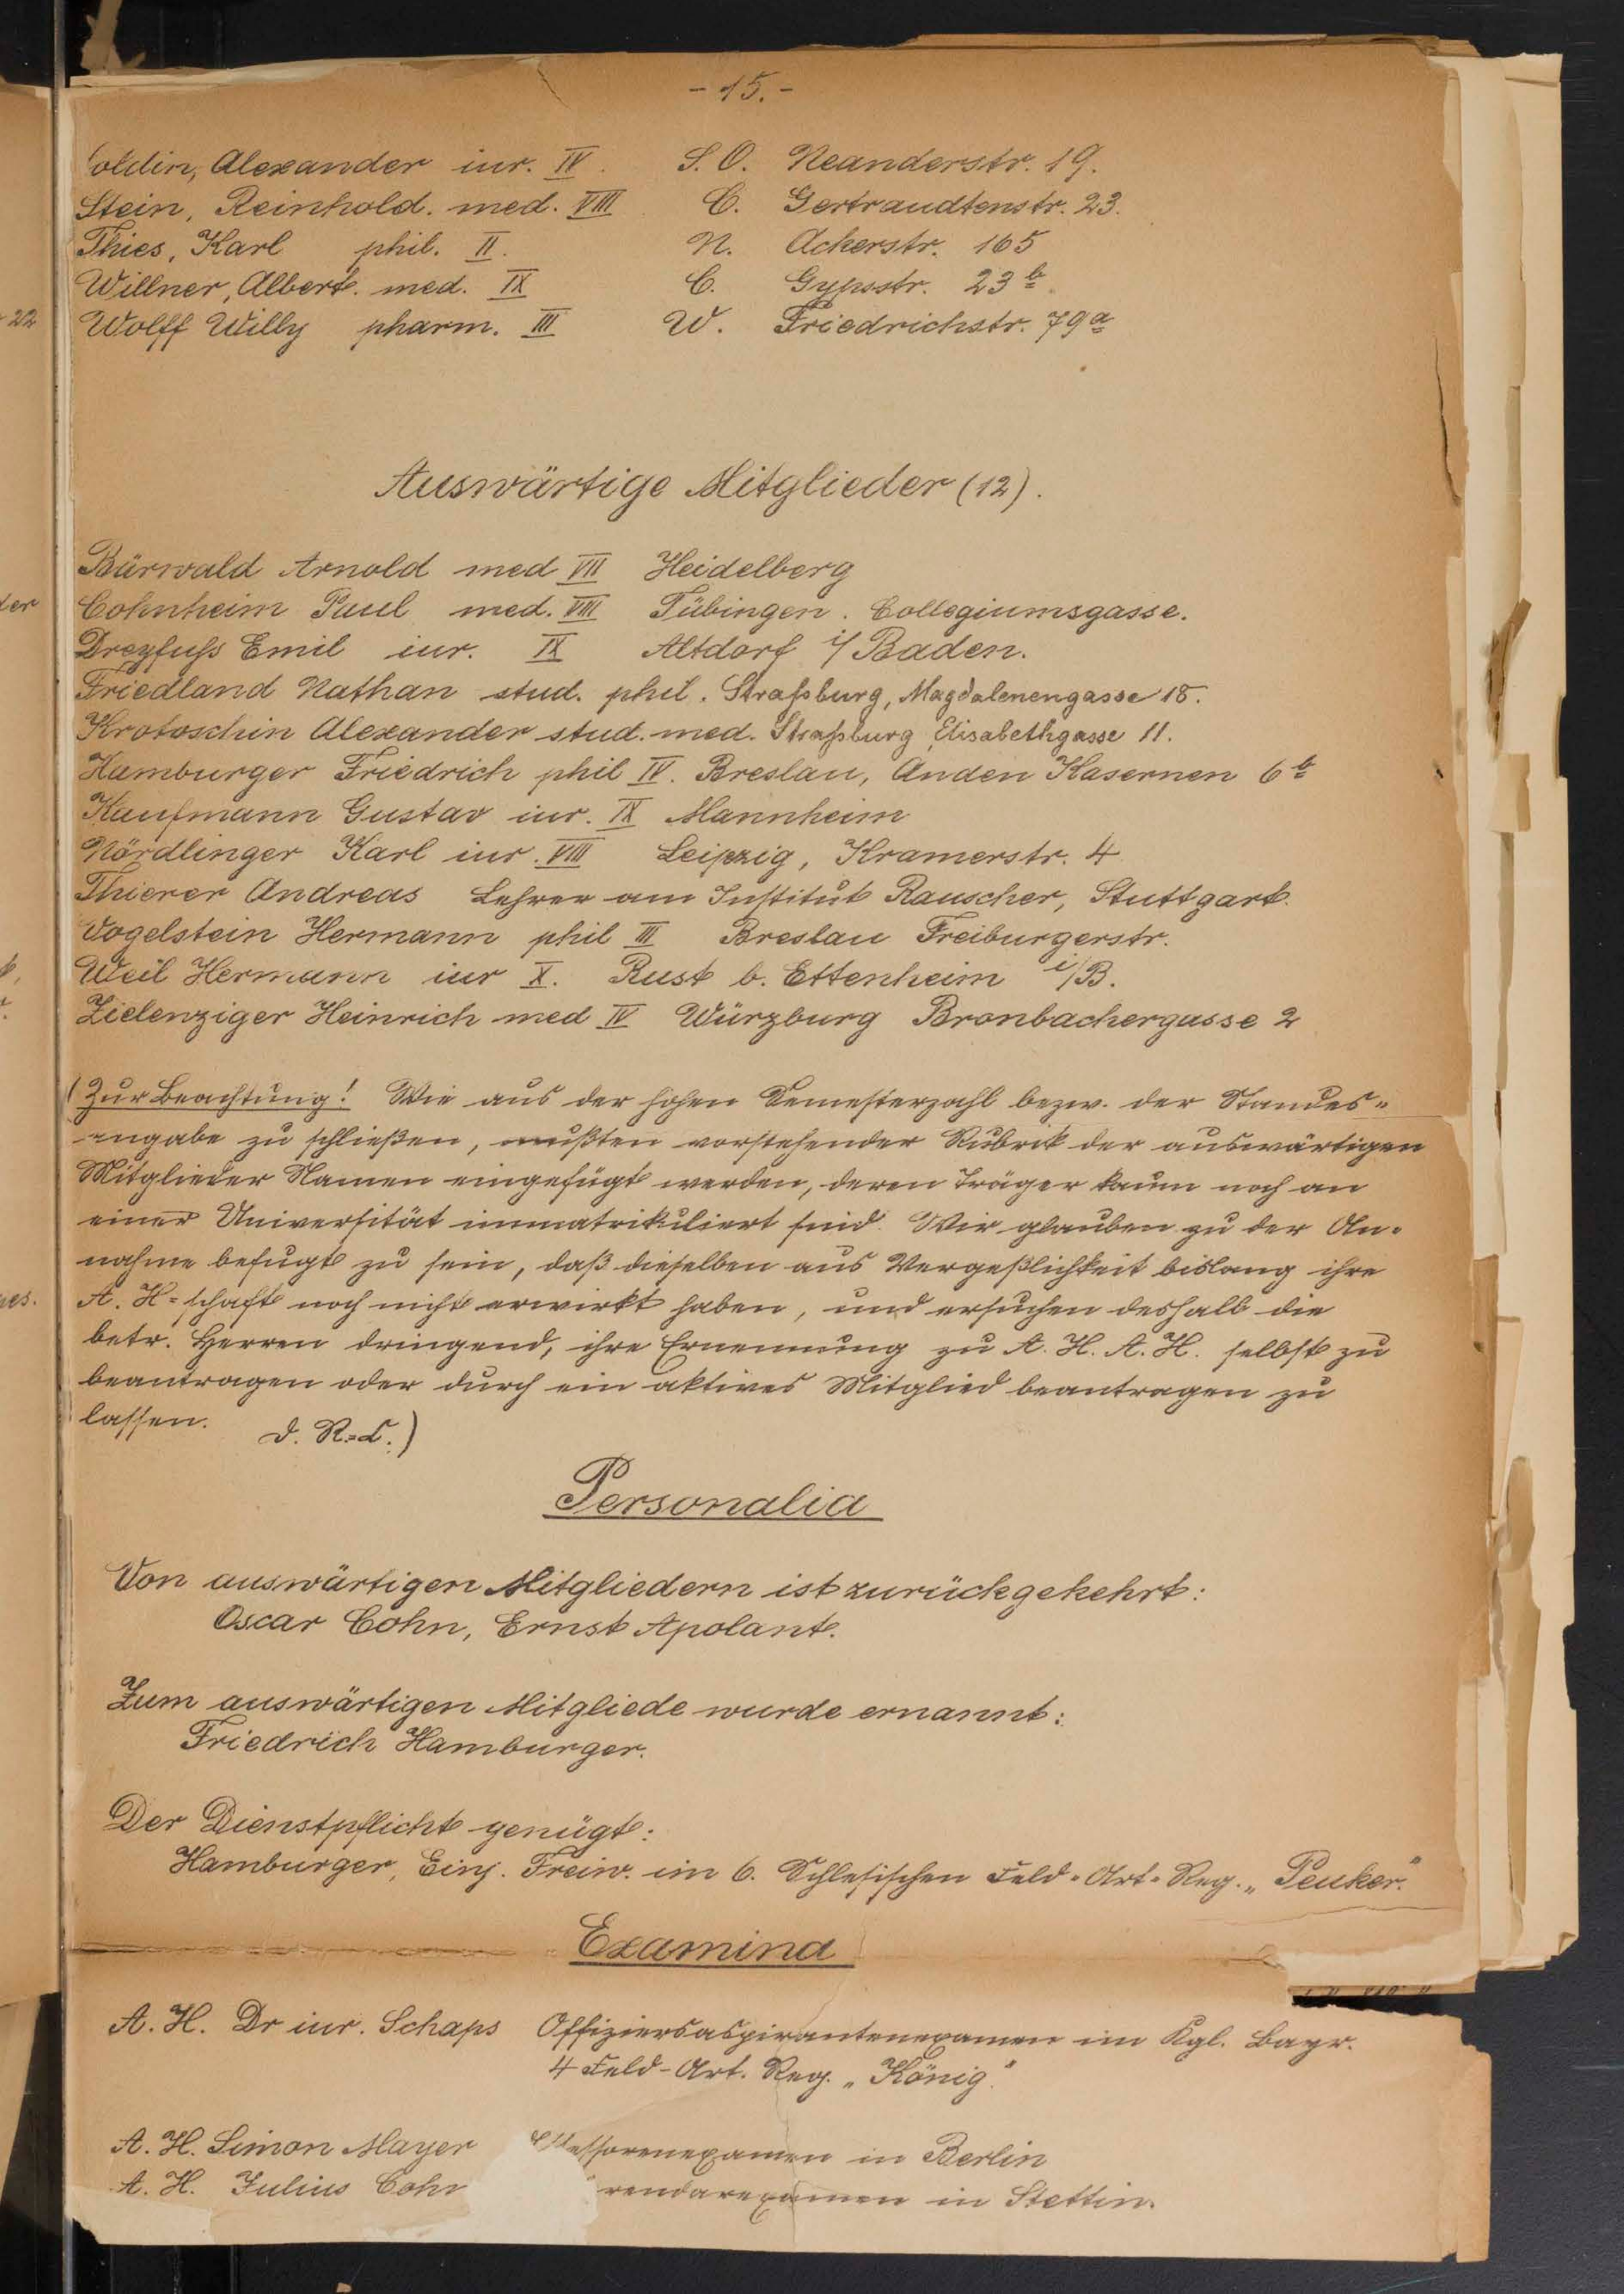 - 15. -
oldin, Alexander iur. IV. S.O. Neanderstr. 19.
Stein, Reinhold. med. VIII C. Gertraudtenstr. 23.
Thies, Karl phil. II. N. Ackerstr. 165
Willner, Albert. med. IX C. Gypsstr. 23 b.
Wolff Willy pharm. III W. Friedrichstr. 79 a
22
Auswärtige Mitglieder (12).
Bärwald Arnold med VII Heidelberg
Cohnheim Paul med. VIII Tübingen. Collegiumsgasse.
Dreyfuſs Emil iur. IX Altdorf i/Baden.
Friedland Nathan stud. phil. Straſsburg, Magdalenengasse 18.
Krotoschin Alexander stud. med. Straſsburg, Elisabethgasse 11.
Hamburger Friedrich phil IV. Breslau, An den Kasernen 6 b
Kaufmann Gustav iur. IX Mannheim
Nördlinger Karl iur. VIII Leipzig, Kramerstr. 4
Thierer Andreas Lehrer am Institut Rauscher, Stuttgart.
Vogelstein Hermann phil III Breslau Freiburgerstr.
Weil Hermann iur X. Rust b. Ettenheim i/B.
Zielenziger Heinrich med IV Würzburg Bronbachergasse 2
(Zur Beachtung! Wie aus der hohen Semesterzahl bezw. der Standes-
angabe zu schließen, mußten vorstehender Rubrik der auswärtigen
Mitglieder Namen eingefügt werden, deren Träger kaum noch an
einer Universität immatrikuliert sind. Wir glauben zu der An-
nahme befugt zu sein, daß dieselben aus Vergeßlichkeit bislang ihre
A. H-schaft noch nicht erwirkt haben, und ersuchen deshalb die
betr. Herren dringend, ihre Ernennung zu A. H. A. H. selbst zu
beantragen oder durch ein aktives Mitglied beantragen zu
lassen. D. R=C.)
Personalia
Von auswärtigen Mitgliedern ist zurückgekehrt:
Oscar Cohn, Ernst Apolant.
Zum auswärtigen Mitgliede wurde ernannt:
Friedrich Hamburger.
Der Dienstpflicht genügt:
Hamburger, Einj. Freiw. im 6. Schlesischen Feld-Art-Reg. „Peuker."
Examina
A. H. Dr iur. Schaps Offiziersaspirantenexamen im Kgl. Bayr.
4 Feld-Art. Reg. „König."
A. H. Simon Mayer Assessorenexamen in Berlin
A. H. Julius Cohn rendarexamen in Stettin.